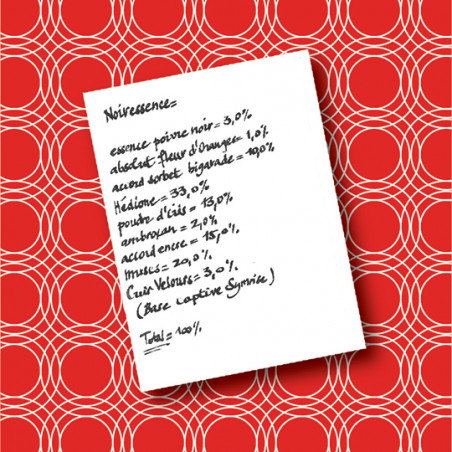 Noiressence=
essence poivre noir = 3,0%
absolut fleur d'Oranger= 1,0%
accord sorbet bigarade = 10,0%
Hédione = 33,0%
poudre d'iris = 13,0%
ambroxan = 2,0%
accord encre = 15,0%
muscs = 20,0%
Cuir Velours = 3,0%
(Base captive Symrise)
Total = 100%